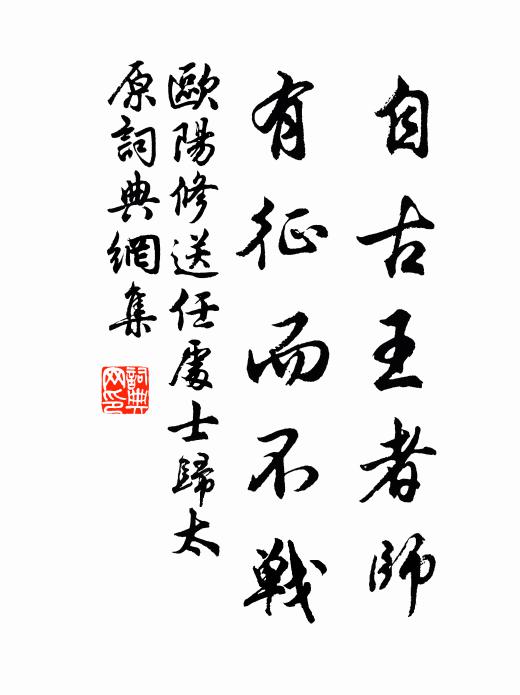 自古王者師
有征而不戦
歐陽修送任處士歸太
原詞典網集
詞典
网印